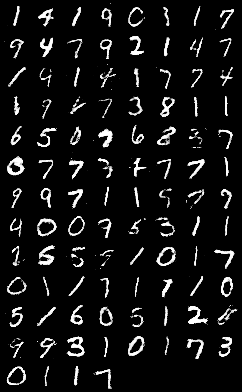 1 4 1 9 0 3 1 7
9 4 7 9 2 1 4 7
1 9 1 4 1 7 7 4
1 9 7 3 8 1 1
6 5 0 9 6 8 3 7
0 7 7 7 7 7 7 1
9 9 7 1 1 5 7 9
4 0 0 7 5 3 1 1
1 5 5 5 1 0 1 7
0 1 1 7 1 7 1 0
5 1 6 0 5 1 2 8
9 9 3 1 0 1 7 3
0 1 1 7